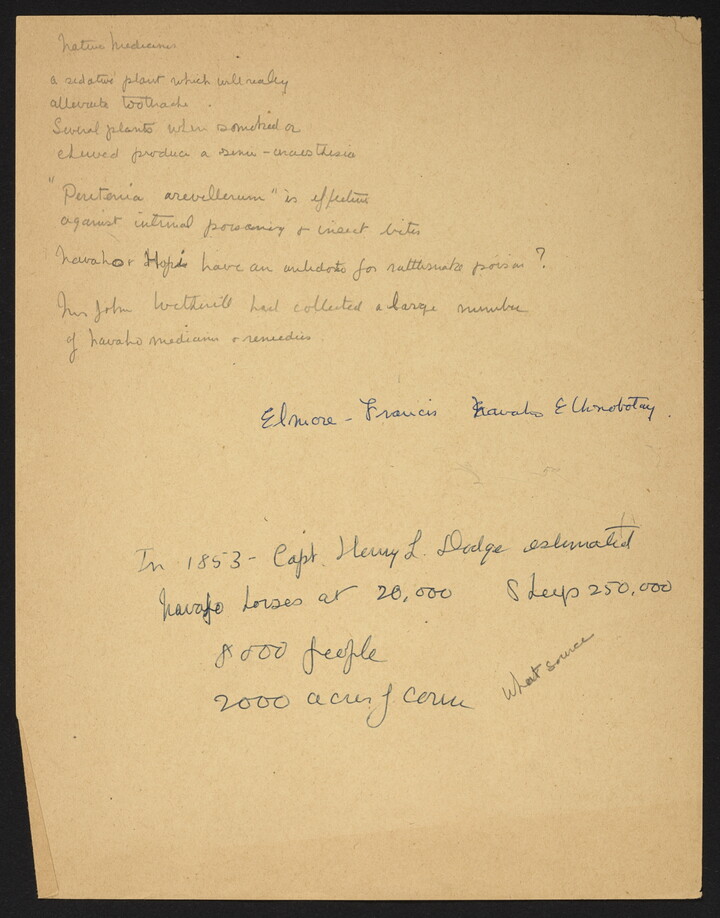 Native Medicines
a sedative plant which will really
alleviate toothache.
Several plants when smoked or
chewed produce a semi-anaesthesia
"Pentenia arevellerum" is effective
against internal poisoning or insect bites
Navaho & Hopis have an antidote for rattlesnake poison?
Mrs John Wetherill had collected a large number
of Navaho medicines & remedies.
Elmore - Francis Navaho Ethnobotany.
In 1853 - Capt. Henry L. Dodge estimated
Navajo horses at 20,000 Sheep 250,000
8000 people
2000 acres of corn
What source